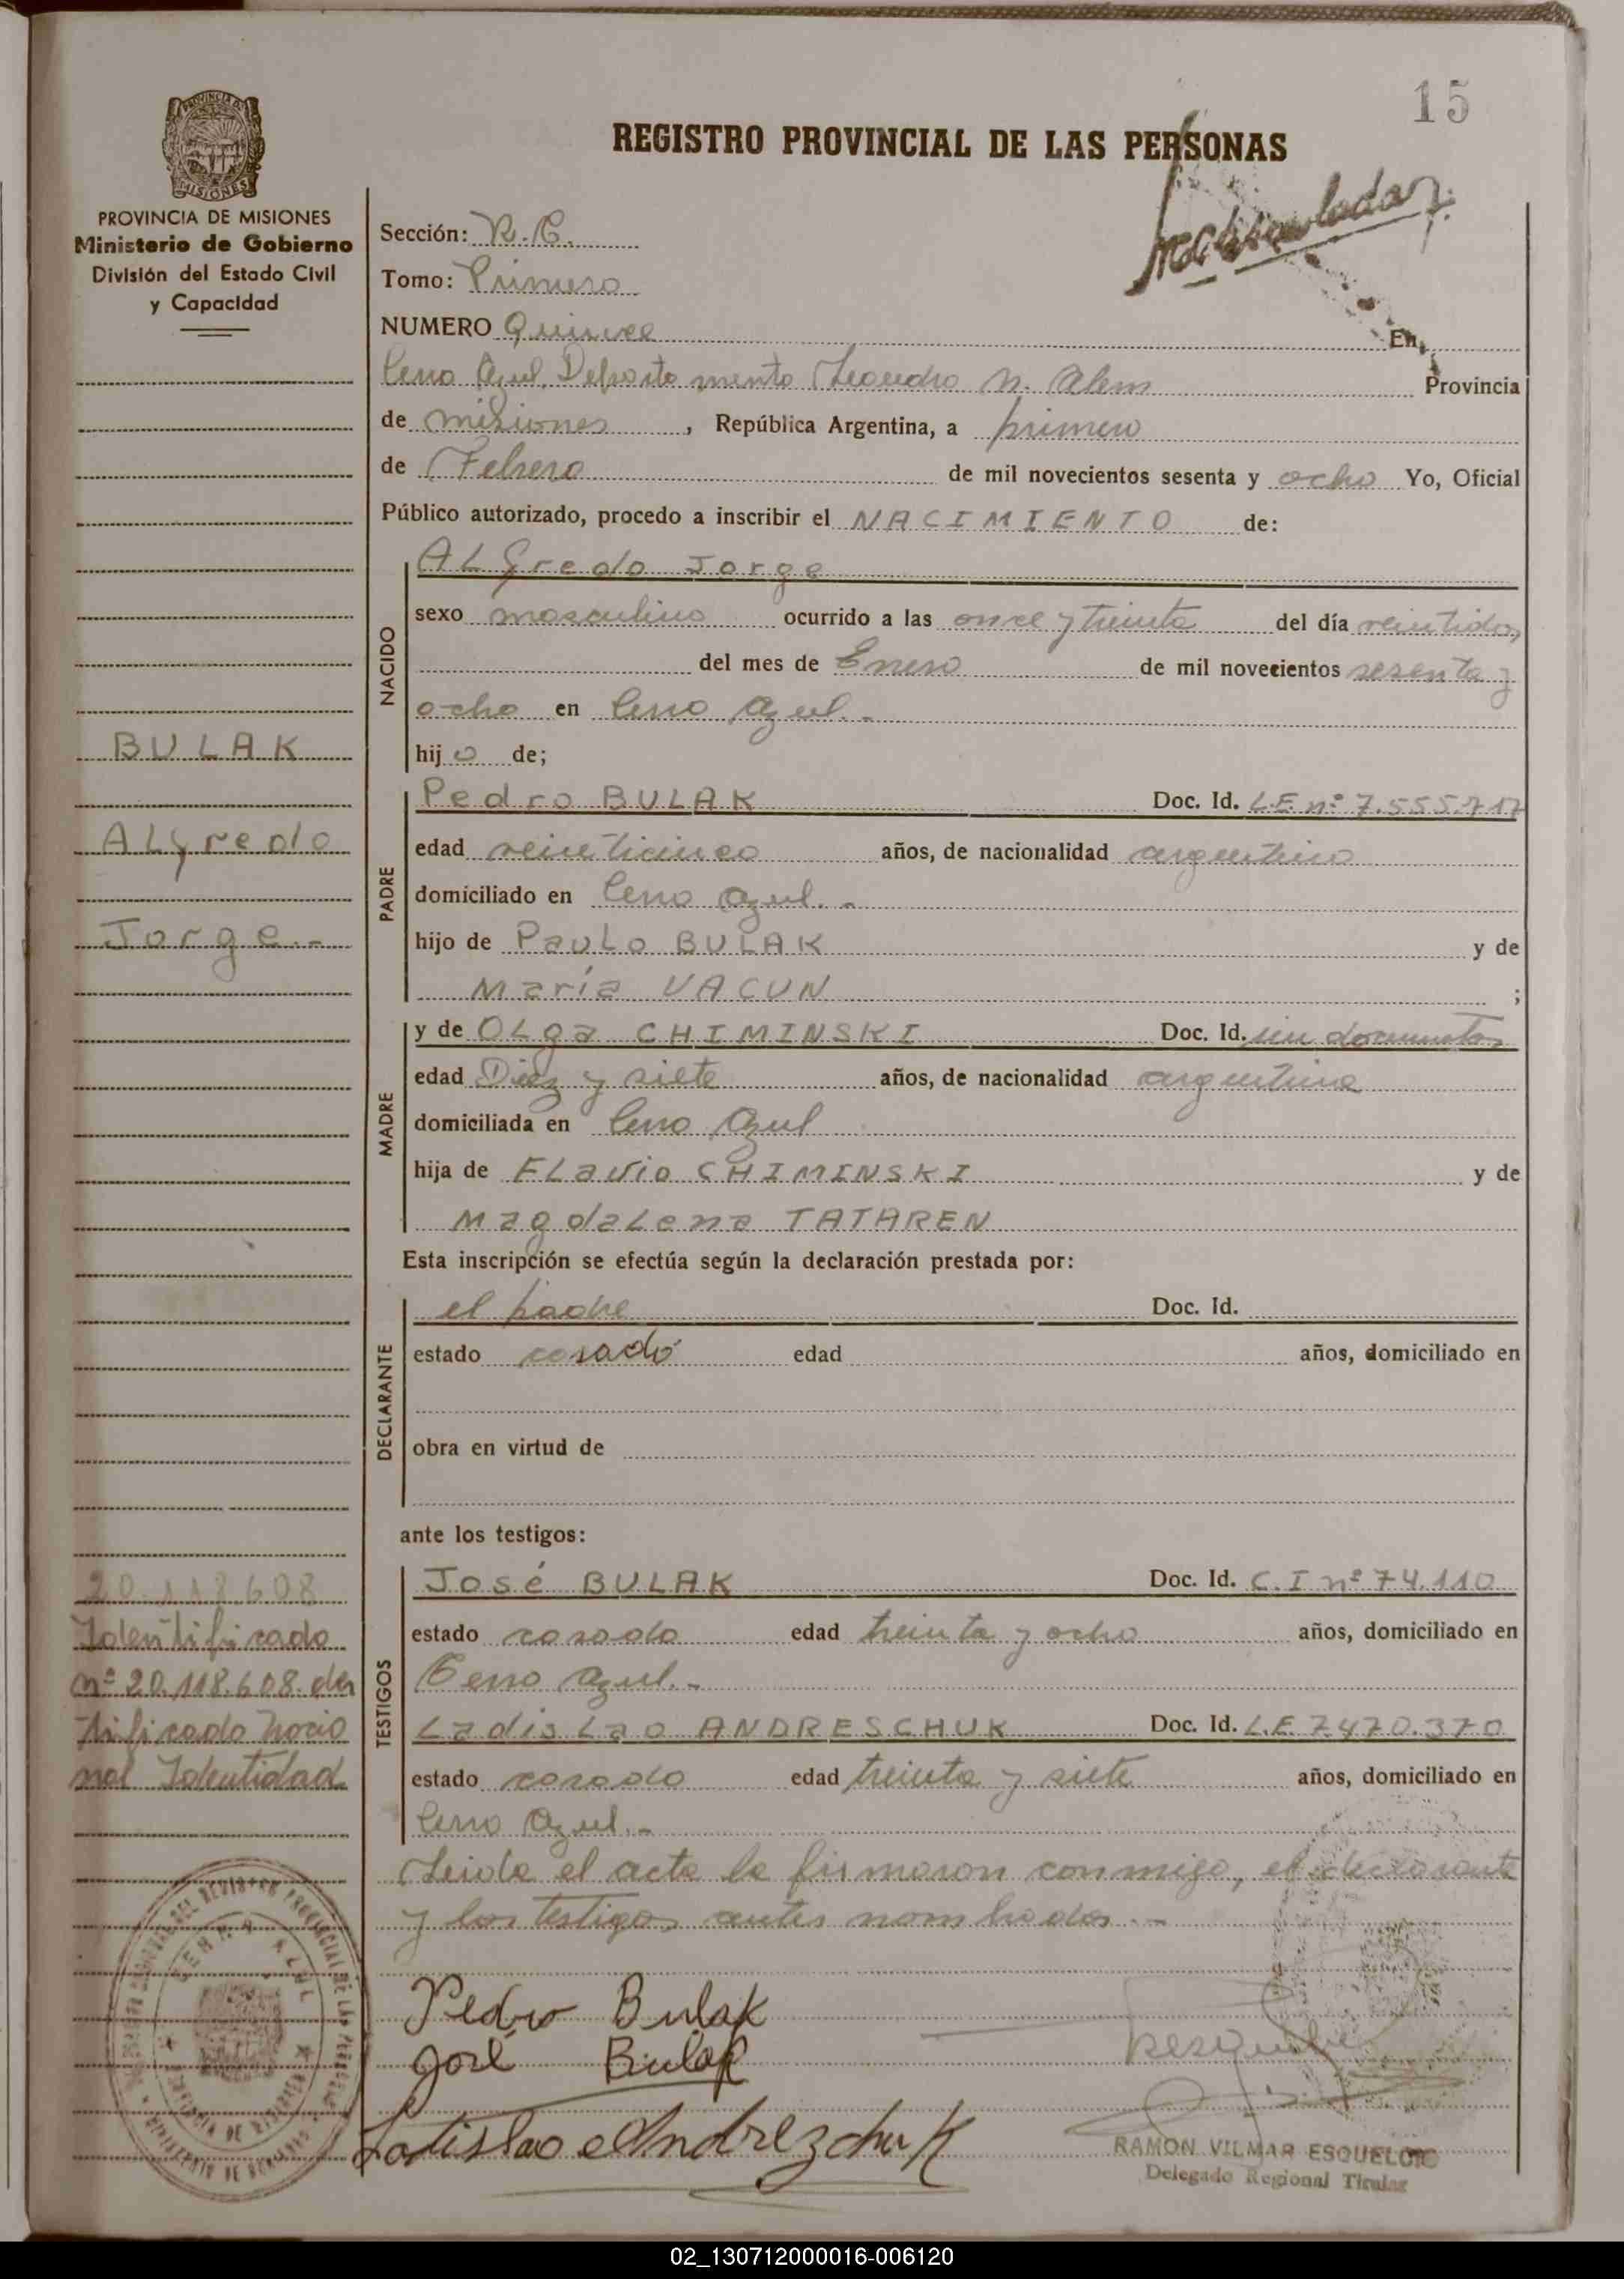 15
REGISTRO PROVINCIAL DE LAS PERSONAS
PROVINCIA DE MISIONES
Ministerio de Gobierno
División del Estado Civil
y Capacidad
Matriculado
Sección: R.C.
Tomo: Primero
NUMERO Quince En
Cerro Azul, Departamento Leandro N. Alem Provincia
de misiones, República Argentina, a primero
de Febrero de mil novecientos sesenta y ocho Yo, Oficial
Público autorizado, procedo a inscribir el NACIMIENTO de:
NACIDO
ALfredo Jorge
sexo masculino ocurrido a las once y treinta del día veintidos
del mes de Enero de mil novecientos sesenta y
ocho en Cerro Azul.-
hijo de;
BULAK
ALfredo
Jorge.-
PADRE
Pedro BULAK Doc. Id. L.E. nº 7.555.717
edad veinticinco años, de nacionalidad argentino
domiciliado en Cerro Azul.-
hijo de PauLo BULAK y de
María VACUN ;
MADRE
y de OLga CHIMINSKI Doc. Id. sin documentos
edad Diez y siete años, de nacionalidad argentina
domiciliada en Cerro Azul
hija de FLavio CHIMINSKI y de
MagdaLena TATAREN
Esta inscripción se efectúa según la declaración prestada por:
DECLARANTE
el padre Doc. Id.
estado casado edad años, domiciliado en
obra en virtud de
ante los testigos:
TESTIGOS
José BULAK Doc. Id. C.I nº 74.110
estado casado edad treinta y ocho años, domiciliado en
Cerro Azul.-
LadisLao ANDRESCHUK Doc. Id. L.E 7.470.370
estado casado edad treinta y siete años, domiciliado en
Cerro Azul.-
20.118.608
Identificado
nº 20.118.608. den
tificado nacio
nal Identidad
Leida el acta la firmaron conmigo, el declarante
y los testigos antes nombrados.-
Pedro Bulak
José Bulak
Ladislao Andrezchuk
CERRO AZUL
RAMON VILMAR ESQUELO
Delegado Regional Titular
02_130712000016-006120